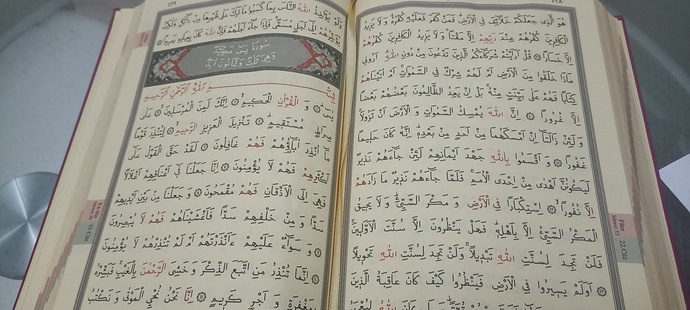 هُوَ الَّذِي جَعَلَكُمْ خَلَائِفَ فِي الْأَرْضِ فَمَنْ كَفَرَ فَعَلَيْهِ كُفْرُهُ وَلَا يَزِيدُ
الْكَافِرِينَ كُفْرُهُمْ عِنْدَ رَبِّهِمْ إِلَّا مَقْتًا وَلَا يَزِيدُ الْكَافِرِينَ كُفْرُهُمْ
إِلَّا خَسَارًا قُلْ أَرَأَيْتُمْ شُرَكَاءَكُمُ الَّذِينَ تَدْعُونَ مِنْ دُونِ اللَّهِ أَرُونِي
مَاذَا خَلَقُوا مِنَ الْأَرْضِ أَمْ لَهُمْ شِرْكٌ فِي السَّمٰوَاتِ أَمْ اٰتَيْنَاهُمْ
كِتَابًا فَهُمْ عَلَى بَيِّنَتٍ مِنْهُ بَلْ إِنْ يَعِدُ الظَّالِمُونَ بَعْضُهُمْ بَعْضًا
إِلَّا غُرُورًا إِنَّ اللَّهَ يُمْسِكُ السَّمٰوَاتِ وَالْأَرْضَ أَنْ تَزُولَا
وَلَئِنْ زَالَتَا إِنْ أَمْسَكَهُمَا مِنْ أَحَدٍ مِنْ بَعْدِهِ إِنَّهُ كَانَ حَلِيمًا
غَفُورًا وَأَقْسَمُوا بِاللَّهِ جَهْدَ أَيْمَانِهِمْ لَئِنْ جَاءَهُمْ نَذِيرٌ
لَيَكُونُنَّ أَهْدَى مِنْ إِحْدَى الْأُمَمِ فَلَمَّا جَاءَهُمْ نَذِيرٌ مَا زَادَهُمْ
إِلَّا نُفُورًا اسْتِكْبَارًا فِي الْأَرْضِ وَمَكْرَ السَّيِّئِ وَلَا يَحِيقُ
الْمَكْرُ السَّيِّئُ إِلَّا بِأَهْلِهِ فَهَلْ يَنْظُرُونَ إِلَّا سُنَّتَ الْأَوَّلِينَ
فَلَنْ تَجِدَ لِسُنَّتِ اللَّهِ تَبْدِيلًا وَلَنْ تَجِدَ لِسُنَّتِ اللَّهِ تَحْوِيلًا
أَوَلَمْ يَسِيرُوا فِي الْأَرْضِ فَيَنْظُرُوا كَيْفَ كَانَ عَاقِبَةُ الَّذِينَ
22.Cüz
وَلَوْ يُؤَاخِذُ اللَّهُ النَّاسَ بِمَا كَسَبُوا مَا تَرَكَ عَلَى ظَهْرِهَا مِنْ دَابَّةٍ وَلٰكِنْ
يُؤَخِّرُهُمْ إِلَى أَجَلٍ مُسَمًّى فَإِذَا جَاءَ أَجَلُهُمْ فَإِنَّ اللَّهَ كَانَ بِعِبَادِهِ بَصِيرًا
سُورَةُ يٰسٓ مَكِّيَّةٌ
بِسْمِ اللَّهِ الرَّحْمٰنِ الرَّحِيمِ
يٰسٓ وَالْقُرْاٰنِ الْحَكِيمِ إِنَّكَ لَمِنَ الْمُرْسَلِينَ عَلَى
صِرَاطٍ مُسْتَقِيمٍ تَنْزِيلَ الْعَزِيزِ الرَّحِيمِ لِتُنْذِرَ قَوْمًا
مَا أُنْذِرَ اٰبَاؤُهُمْ فَهُمْ غَافِلُونَ لَقَدْ حَقَّ الْقَوْلُ عَلَى
أَكْثَرِهِمْ فَهُمْ لَا يُؤْمِنُونَ إِنَّا جَعَلْنَا فِي أَعْنَاقِهِمْ أَغْلَالًا
فَهِيَ إِلَى الْأَذْقَانِ فَهُمْ مُقْمَحُونَ وَجَعَلْنَا مِنْ بَيْنِ أَيْدِيهِمْ
سَدًّا وَمِنْ خَلْفِهِمْ سَدًّا فَأَغْشَيْنَاهُمْ فَهُمْ لَا يُبْصِرُونَ
وَسَوَاءٌ عَلَيْهِمْ ءَأَنْذَرْتَهُمْ أَمْ لَمْ تُنْذِرْهُمْ لَا يُؤْمِنُونَ
إِنَّمَا تُنْذِرُ مَنِ اتَّبَعَ الذِّكْرَ وَخَشِيَ الرَّحْمٰنَ بِالْغَيْبِ فَبَشِّرْهُ
بِمَغْفِرَةٍ وَأَجْرٍ كَرِيمٍ إِنَّا نَحْنُ نُحْيِ الْمَوْتَى وَنَكْتُبُ
22.Cüz